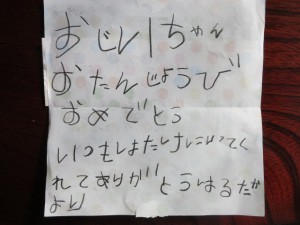 おじいちゃん
おたんじょうび
おめでとう
いつもはたけにいってく
れてありがとうはるたか
より